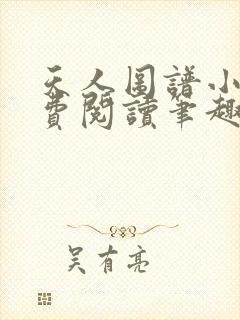 天人图谱小
费阅读笔趣
吴有亮